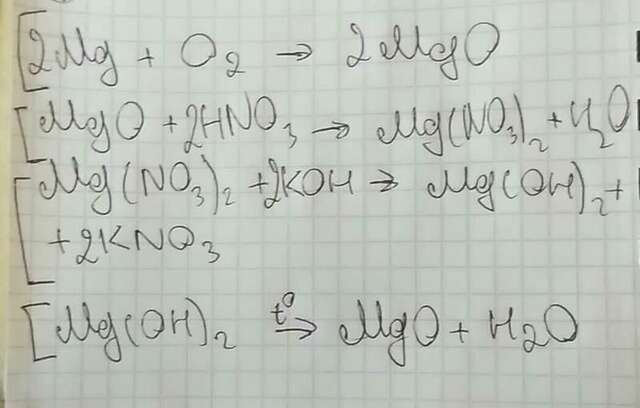 2Mg + O₂ → 2MgO
MgO + 2HNO₃ → Mg(NO₃)₂ + H₂O
Mg(NO₃)₂ + 2KOH → Mg(OH)₂ +
+ 2KNO₃
Mg(OH)₂ t° → MgO + H₂O